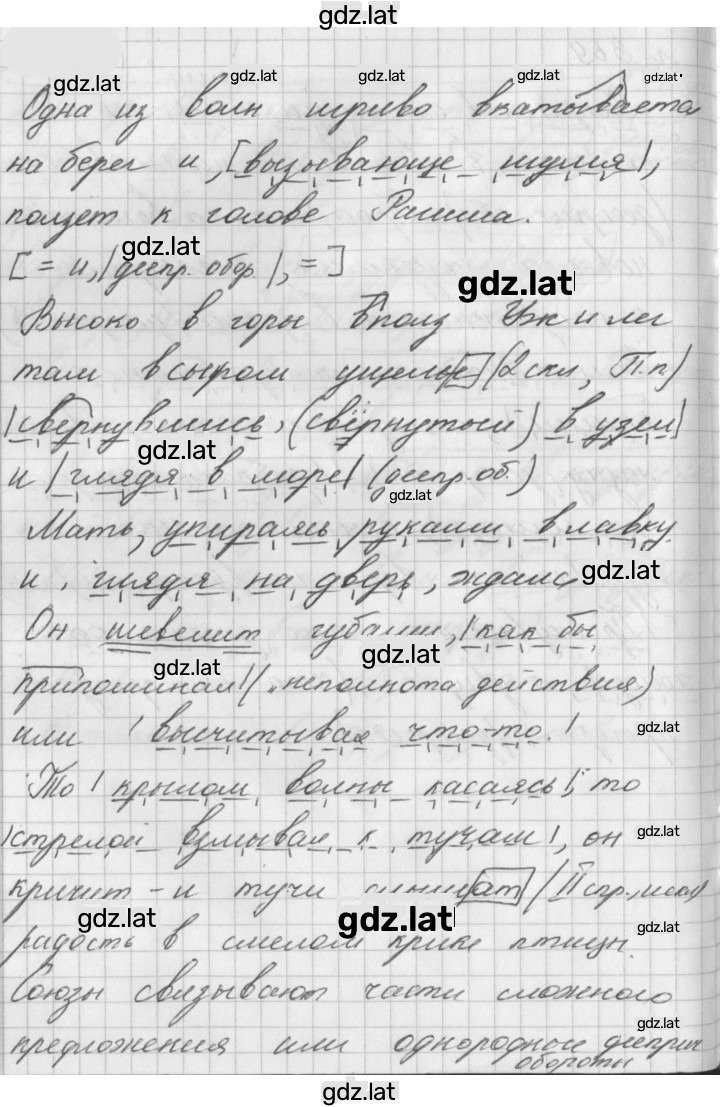 gdz.lat
gdz.lat gdz.lat gdz.lat gdz.lat gdz.lat
Одна из волн игриво вкатывается
на берег и, |вызывающе шумя|,
ползет к голове Рагима.
gdz.lat
[= и, |деепр. обор.|, =]
gdz.lat
Высоко в горы вполз Уж и лег
там в сыром ущелье (2 скл, П.п)
|свернувшись, (свёрнутый) в узел|
gdz.lat
и |глядя в море| (деепр. об.)
gdz.lat
Мать, упираясь руками в лавку
и, глядя на дверь, ждала
gdz.lat
Он шевелит губами, |как бы
gdz.lat gdz.lat
припоминая| (неполнота действия)
или |высчитывая что-то.|
gdz.lat
То |крылом волны касаясь|, то
|стрелой взмывая к тучам|, он
gdz.lat
кричит - и тучи слышат (II спр., искл)
gdz.lat gdz.lat gdz.lat
радость в смелом крике птицы.
Союзы связывают части сложного
gdz.lat
предложения или однородные дееприч
обороты
gdz.lat